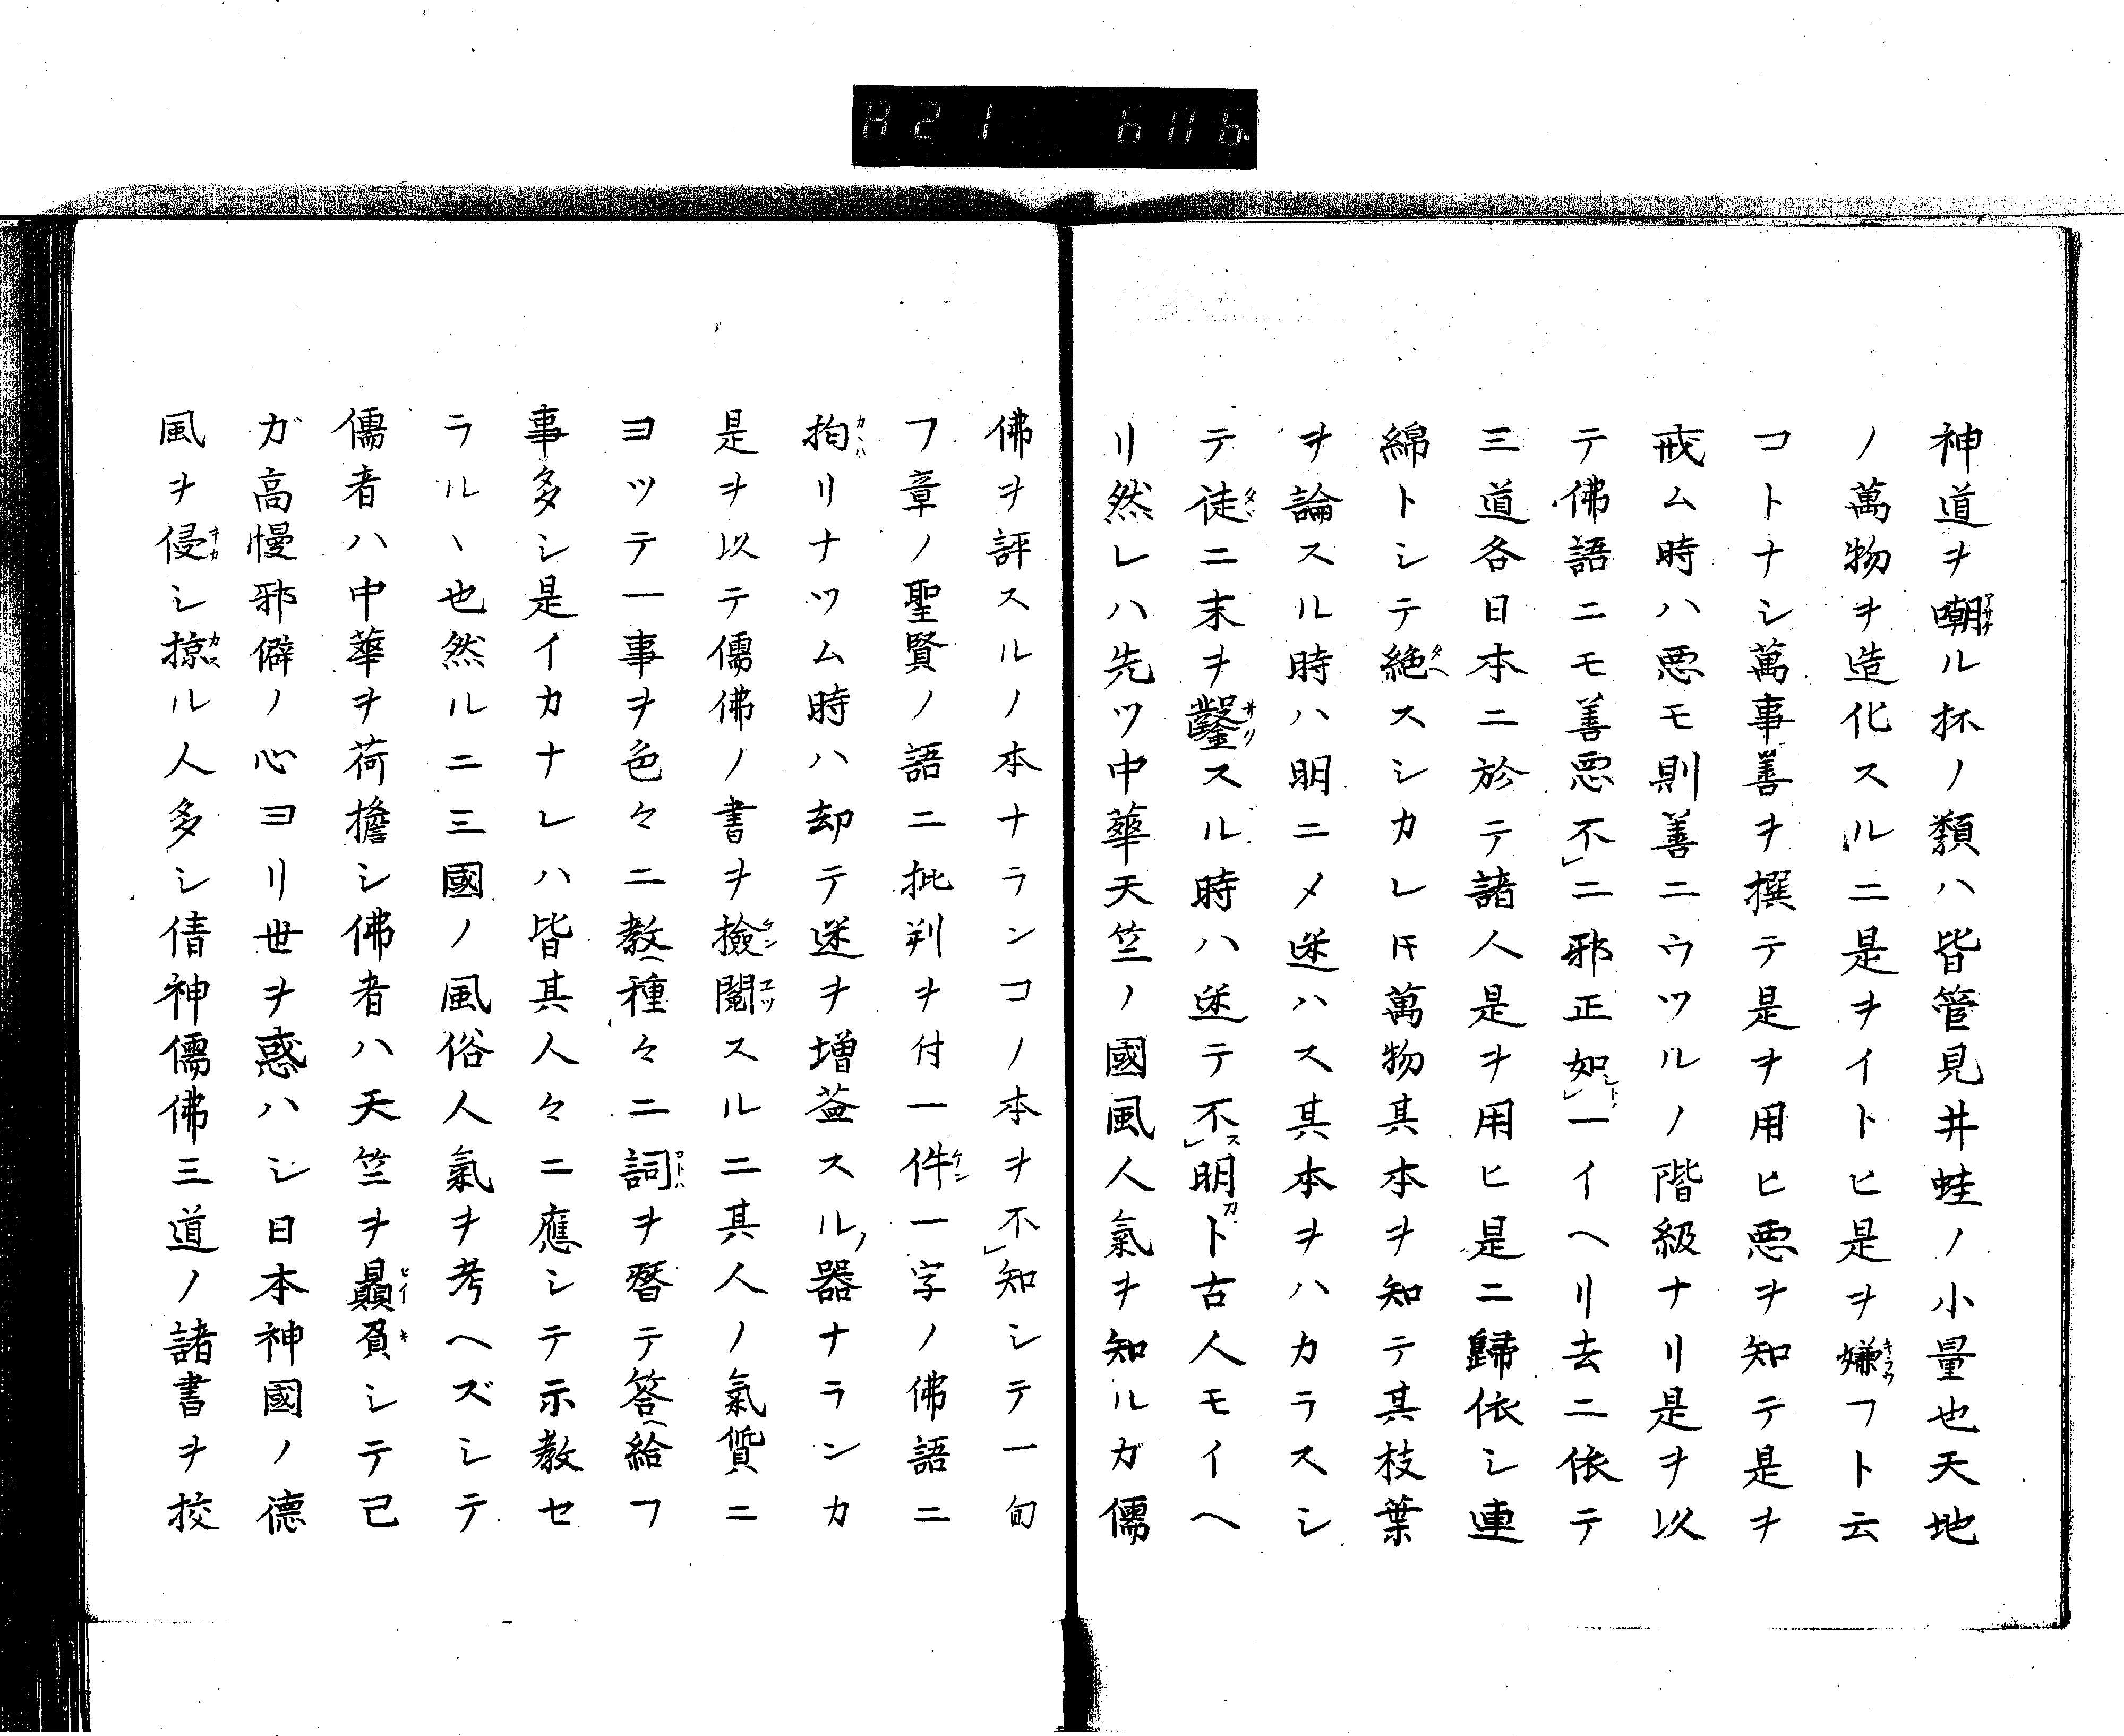 821 606
神道ヲ嘲ル抔ノ類ハ皆管見井蛙ノ小量也天地
ノ萬物ヲ造化スルニ是ヲイトヒ是ヲ嫌フト云
コトナシ萬事善ヲ撰テ是ヲ用ヒ悪ヲ知テ是ヲ
戒ム時ハ悪モ則善ニウツルノ階級ナリ是ヲ以
テ佛語ニモ善悪不二邪正如一イヘリ去ニ依テ
三道各日本ニ於テ諸人是ヲ用ヒ是ニ歸依シ連
綿トシテ絶スシカレ𪜈萬物其本ヲ知テ其枝葉
ヲ論スル時ハ明ニメ迷ハス其本ヲハカラスシ
テ徒ニ末ヲ鑿スル時ハ迷テ不明ト古人モイヘ
リ然レハ先ツ中華天竺ノ國風人氣ヲ知ルガ儒
佛ヲ評スルノ本ナランコノ本ヲ不知シテ一句
フ章ノ聖賢ノ語ニ批判ヲ付一件一字ノ佛語ニ
拘リナツム時ハ却テ迷ヲ増益スル器ナランカ
是ヲ以テ儒佛ノ書ヲ撿閲スルニ其人ノ氣質ニ
ヨツテ一事ヲ色々ニ教へ種々ニ詞ヲ替テ答へ給フ
事多シ是イカナレハ皆其人々ニ應シテ示教セ
ラルヽ也然ルニ三國ノ風俗人氣ヲ考ヘズシテ
儒者ハ中華ヲ荷擔シ佛者ハ天竺ヲ贔屓シテ己
ガ高慢邪僻ノ心ヨリ世ヲ惑ハシ日本神國ノ德
風ヲ侵シ掠ル人多シ倩神儒佛三道ノ諸書ヲ挍